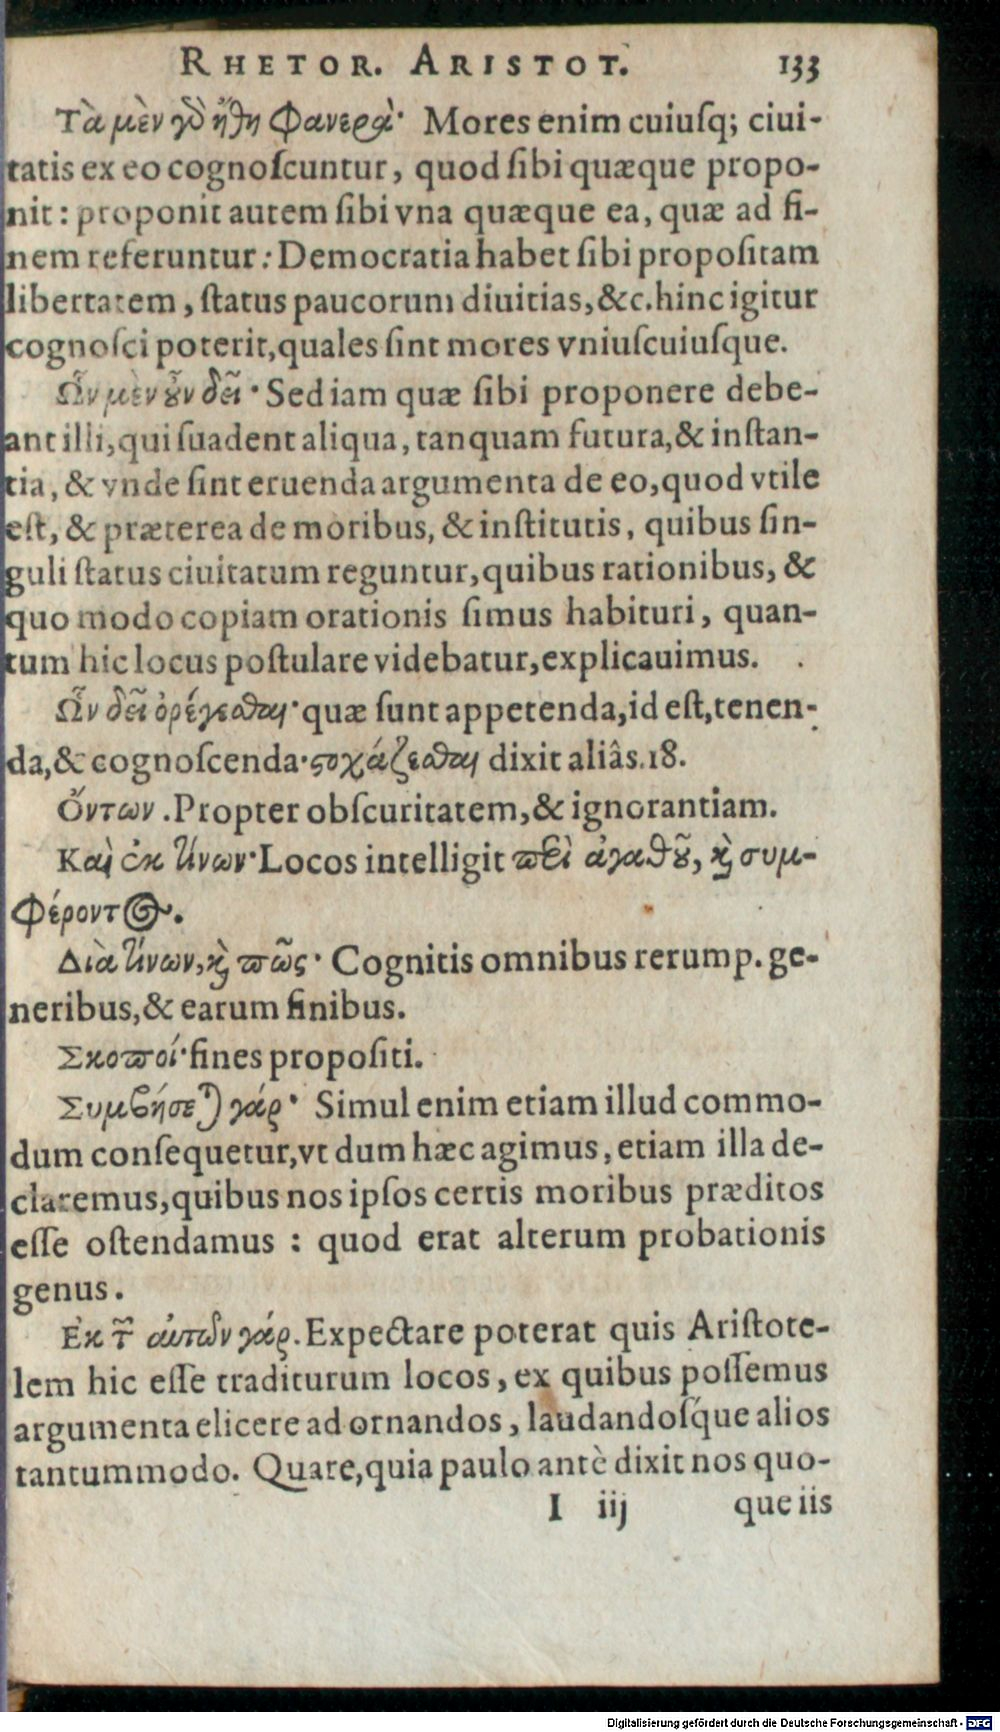 RHETOR. ARISTOT. 133
Τὰ μὲν γὸ ἤθη φανερά· Mores enim cuiusq; ciui-
tatis ex eo cognoſcuntur, quod ſibi quæque propo-
nit: proponit autem ſibi vna quæque ea, quæ ad fi-
nem referuntur: Democratia habet ſibi propoſitam
libertatem, ſtatus paucorum diuitias, &c. hinc igitur
cognoſci poterit, quales ſint mores vniuſcuiuſque.
Ὧν μὲν ȣ̓͂ν δεῖ· Sed iam quæ ſibi proponere debe-
ant illi, qui ſuadent aliqua, tanquam futura, & inſtan-
tia, & vnde ſint eruenda argumenta de eo, quod vtile
eſt, & præterea de moribus, & inſtitutis, quibus ſin-
guli ſtatus ciuitatum reguntur, quibus rationibus, &
quo modo copiam orationis ſimus habituri, quan-
tum hic locus poſtulare videbatur, explicauimus.
Ὧν δεῖ ὀρέγεσθαι· quæ ſunt appetenda, id eſt, tenen-
da, & cognoſcenda· ϛοχάζεσθαι dixit aliâs. 18.
Ὄντων. Propter obſcuritatem, & ignorantiam.
Καὶ ἐκ τίνων· Locos intelligit πεὶ ἀγαθȣ͂, ϗ̀ συμ-
φέροντος.
Διὰ τίνων, ϗ̀ πῶς· Cognitis omnibus rerump. ge-
neribus, & earum finibus.
Σκοποί· fines propoſiti.
Συμβήσεται γάρ· Simul enim etiam illud commo-
dum conſequetur, vt dum hæc agimus, etiam illa de-
claremus, quibus nos ipſos certis moribus præditos
eſſe oſtendamus : quod erat alterum probationis
genus.
Ἐκ τῶν αὐτῶν γάρ. Expectare poterat quis Ariſtote-
lem hic eſſe traditurum locos, ex quibus poſſemus
argumenta elicere ad ornandos, laudandoſq́ue alios
tantummodo. Quare, quia paulo antè dixit nos quo-
I iij que iis
Digitalisierung gefördert durch die Deutsche Forschungsgemeinschaft - DFG